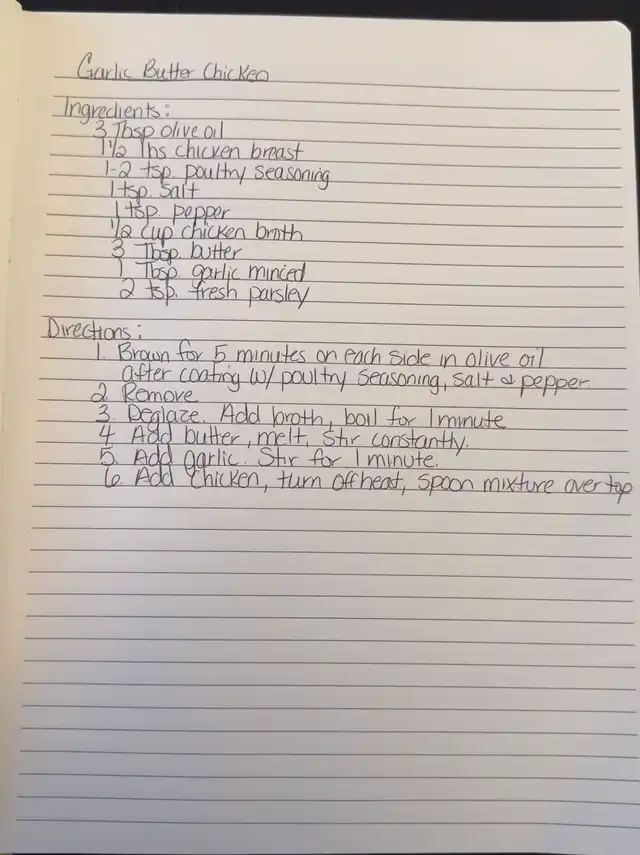 Garlic Butter Chicken
Ingredients:
3 Tbsp olive oil
1 1/2 lbs chicken breast
1-2 tsp. poultry seasoning
1 tsp. salt
1 tsp. pepper
1/2 cup chicken broth
3 Tbsp. butter
1 Tbsp. garlic minced
2 tsp. fresh parsley
Directions:
1. Brown for 5 minutes on each side in olive oil
after coating w/ poultry seasoning, salt & pepper
2. Remove
3. Deglaze. Add broth, boil for 1 minute
4. Add butter, melt, stir constantly.
5. Add garlic. Stir for 1 minute.
6. Add chicken, turn off heat, spoon mixture over top